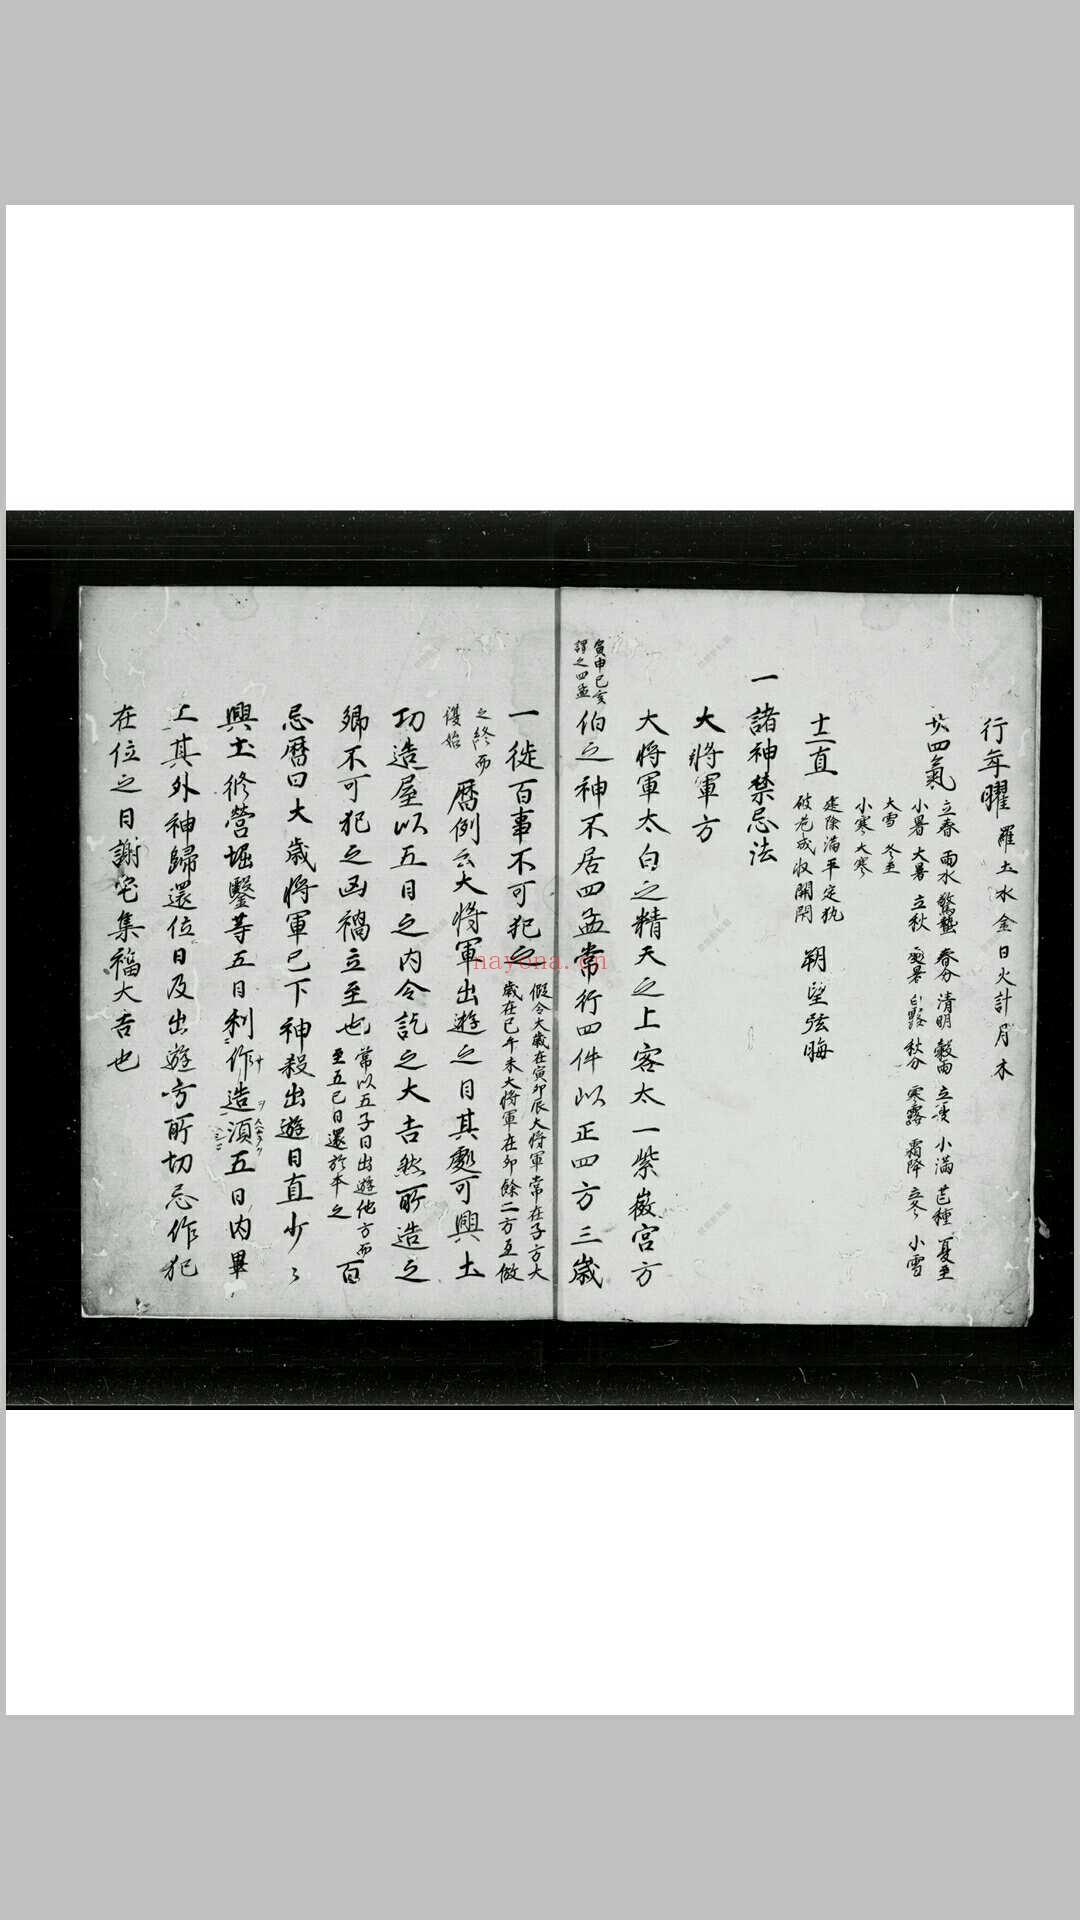 行年曜 羅土水金日火計月木
廿四氣 立春 雨水 驚蟄 春分 清明 穀雨 立夏 小滿 芒種 夏至
小暑 大暑 立秋 處暑 白露 秋分 寒露 霜降 立冬 小雪
大雪 冬至
小寒 大寒
十二直 建除滿平定執
破危成収開閇 朔望弦晦
一 諸神禁忌法
大將軍方
大將軍太白之精天之上客太一紫微宮方
伯之神不居四孟常行四仲以正四方三歳
寅申巳亥
謂之四孟
一徙百事不可犯之 假令大歳在寅卯辰大將軍常在子方大
歳在巳午未大將軍在卯餘二方互倣
之終而
復始 暦例云大將軍出遊之日其處可興土
功造屋以五日之内令訖之大吉然所造之
郷不可犯之凶禍立至也 常以五子日出遊他方而
至五巳日還於本之 百
忌暦曰大歳將軍已下神殺出遊日直少々
興土修營堀鑿等五日利作造須五日内畢
工其外神歸還位日及出遊方所切忌作犯
在位之日謝宅集福大吉也
nayona.cn